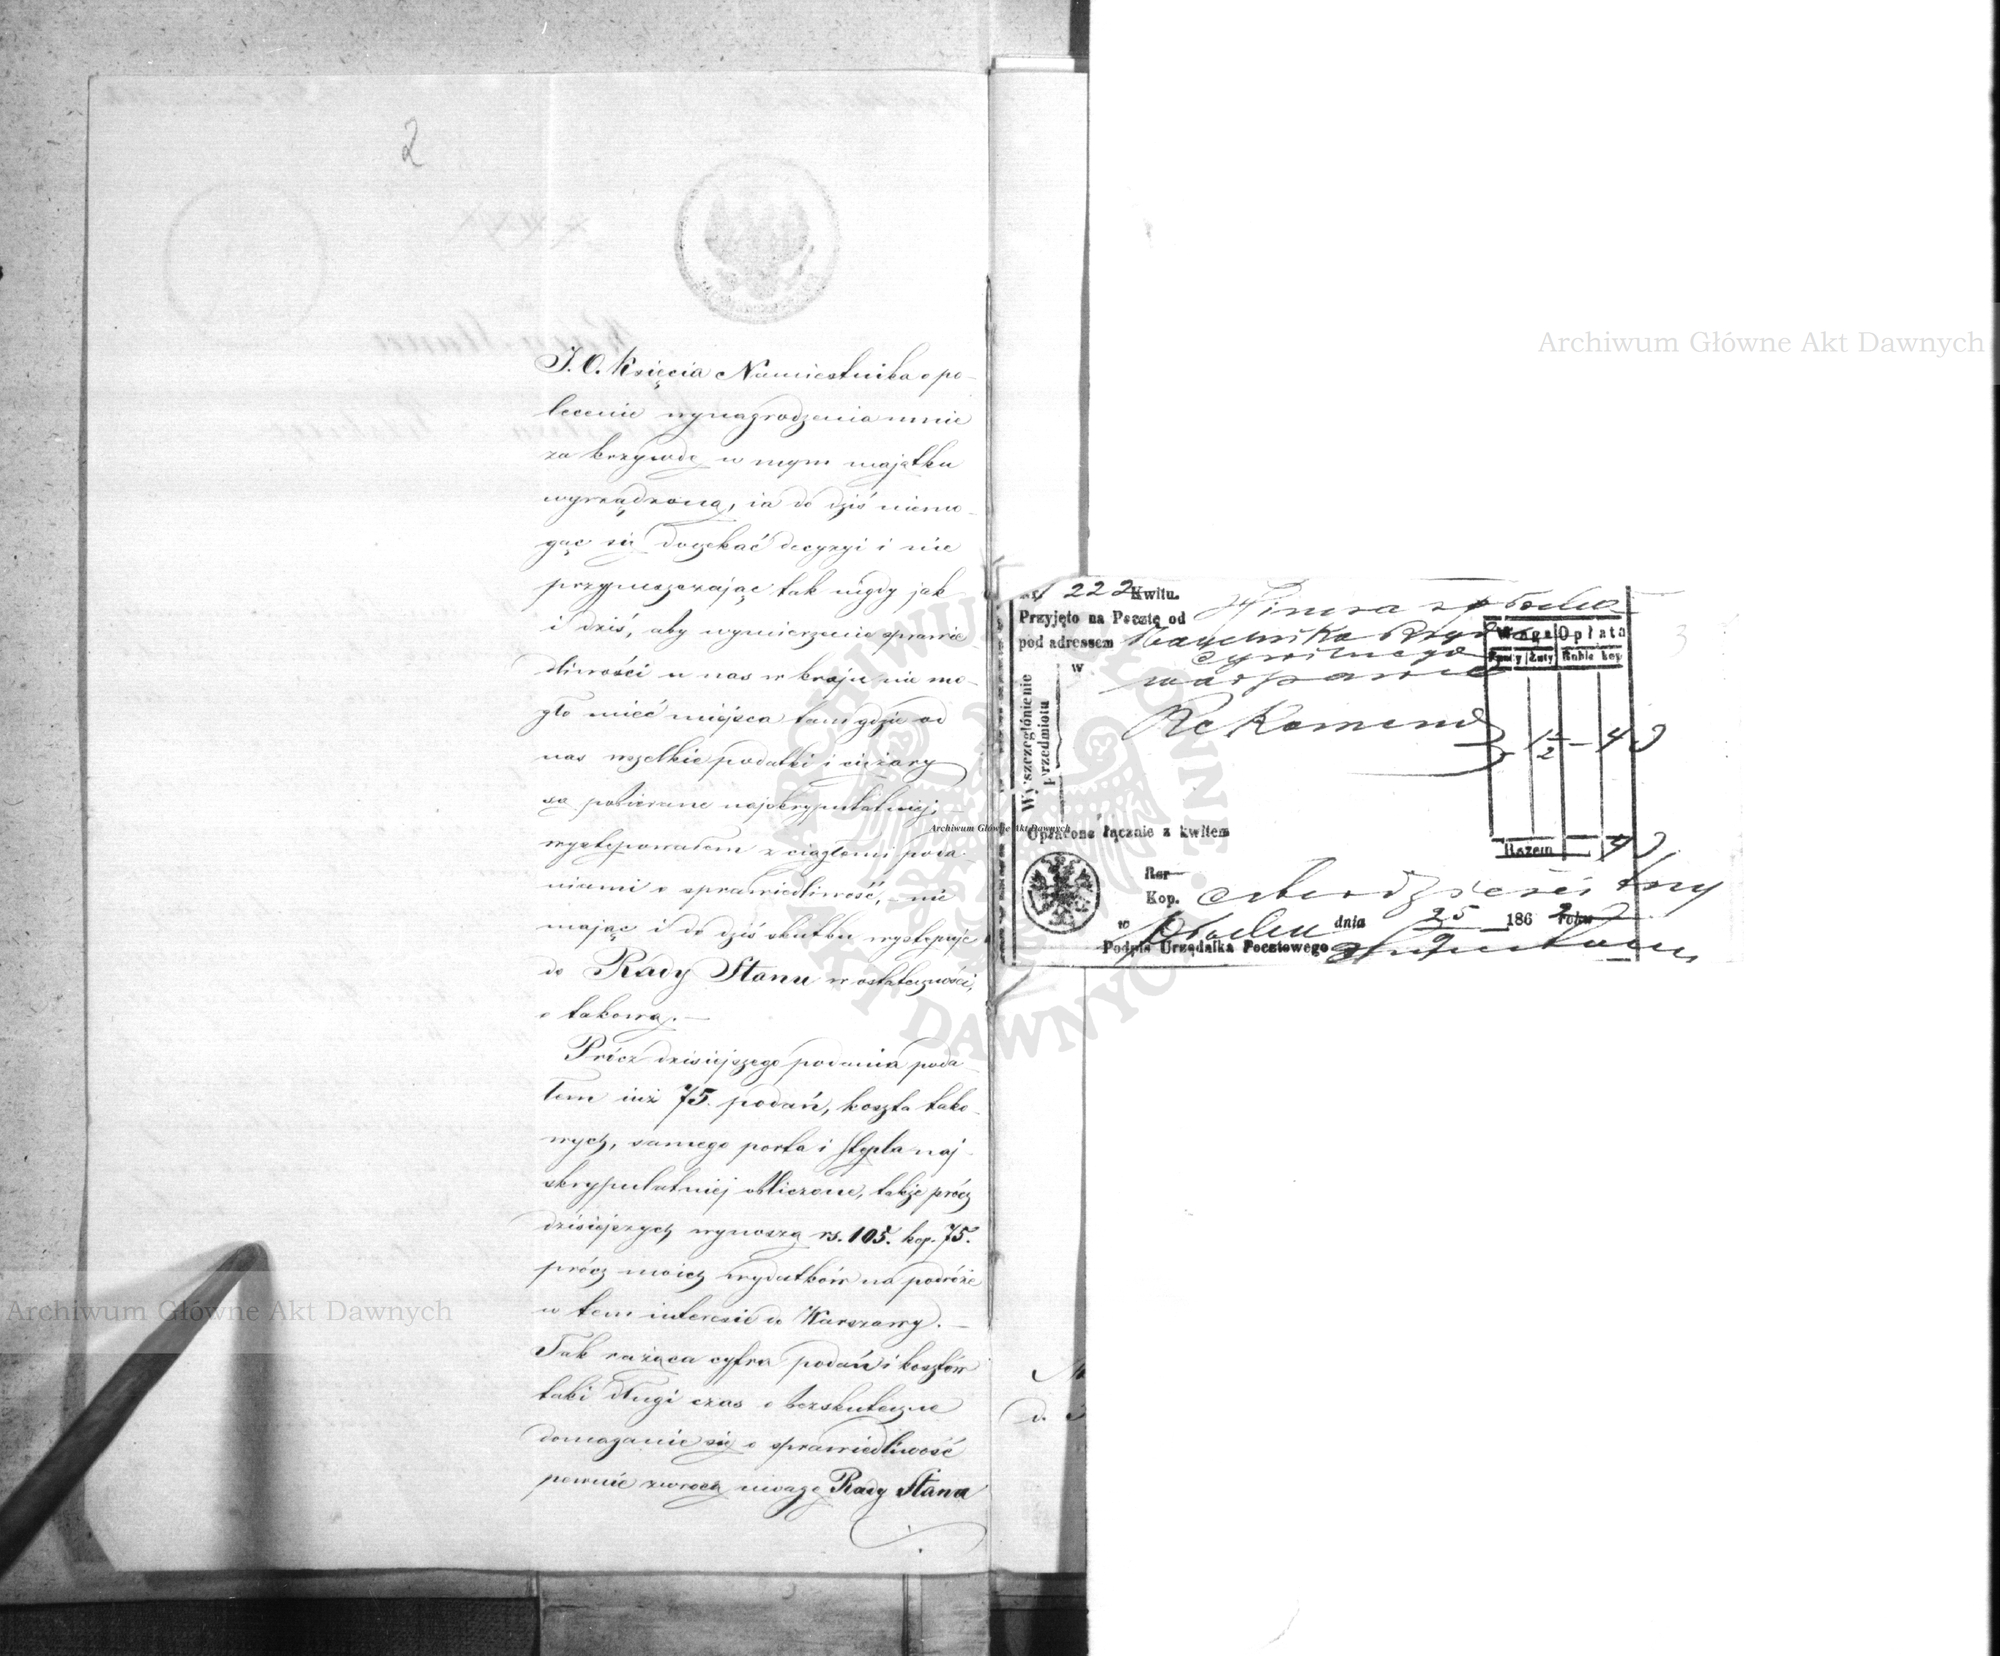 2
J. O. Księcia Namiestnika o po-
lecenie wynagrodzenia mnie
za krzywdę w mym majątku
wyrządzoną, ia do dziś niemo-
gąc się doczekać decyzyi i nie
przypuszczając tak nigdy jak
i dziś, aby wymierzenie sprawie-
dliwości u nas w kraju nie mo-
gło mieć miejsca tam gdzie od
nas wszelkie podatki i ciężary
są pobierane najskrypulatniej,
występowałem z ciągłemi poda-
niami o sprawiedliwość, – nie
mając i do dziś skutku występuję
do Rady Stanu w ostateczności,
o takową. —
Prócz dzisiejszego podania poda-
łem już 75. podań, koszta tako-
wych, samego porta i stępla naj-
skrypulatniej obliczone, także prócz
dzisiejszych wynoszą rs. 105. kop. 75.
prócz moich wydatków na podróże
w tem interesie do Warszawy. —
Tak rażąca cyfra podań i kosztów
taki długi czas o bezskuteczne
domaganie się o sprawiedliwość
pewnie zwróci uwagę Rady Stanu
Nr 222 Kwitu.
Przyjęto na Pocztę od
pod adressem Naczelnika Rządu
Cywilnego
w Warszawie
Waga Opłata
Funty Łuty Ruble kop
Wyszczególnienie
Przedmiotu
Rekomend
1 1/2 – 43
Opłacono łącznie z kwitem
Razem 43
Rsr
Kop. czterdzieści trzy
w dnia 25 186 2 roku
9
Podpis Urzędnika Pocztowego
3
Archiwum Główne Akt Dawnych
Archiwum Główne Akt Dawnych
Archiwum Główne Akt Dawnych
ARCHIWUM GŁÓWNE AKT DAWNYCH